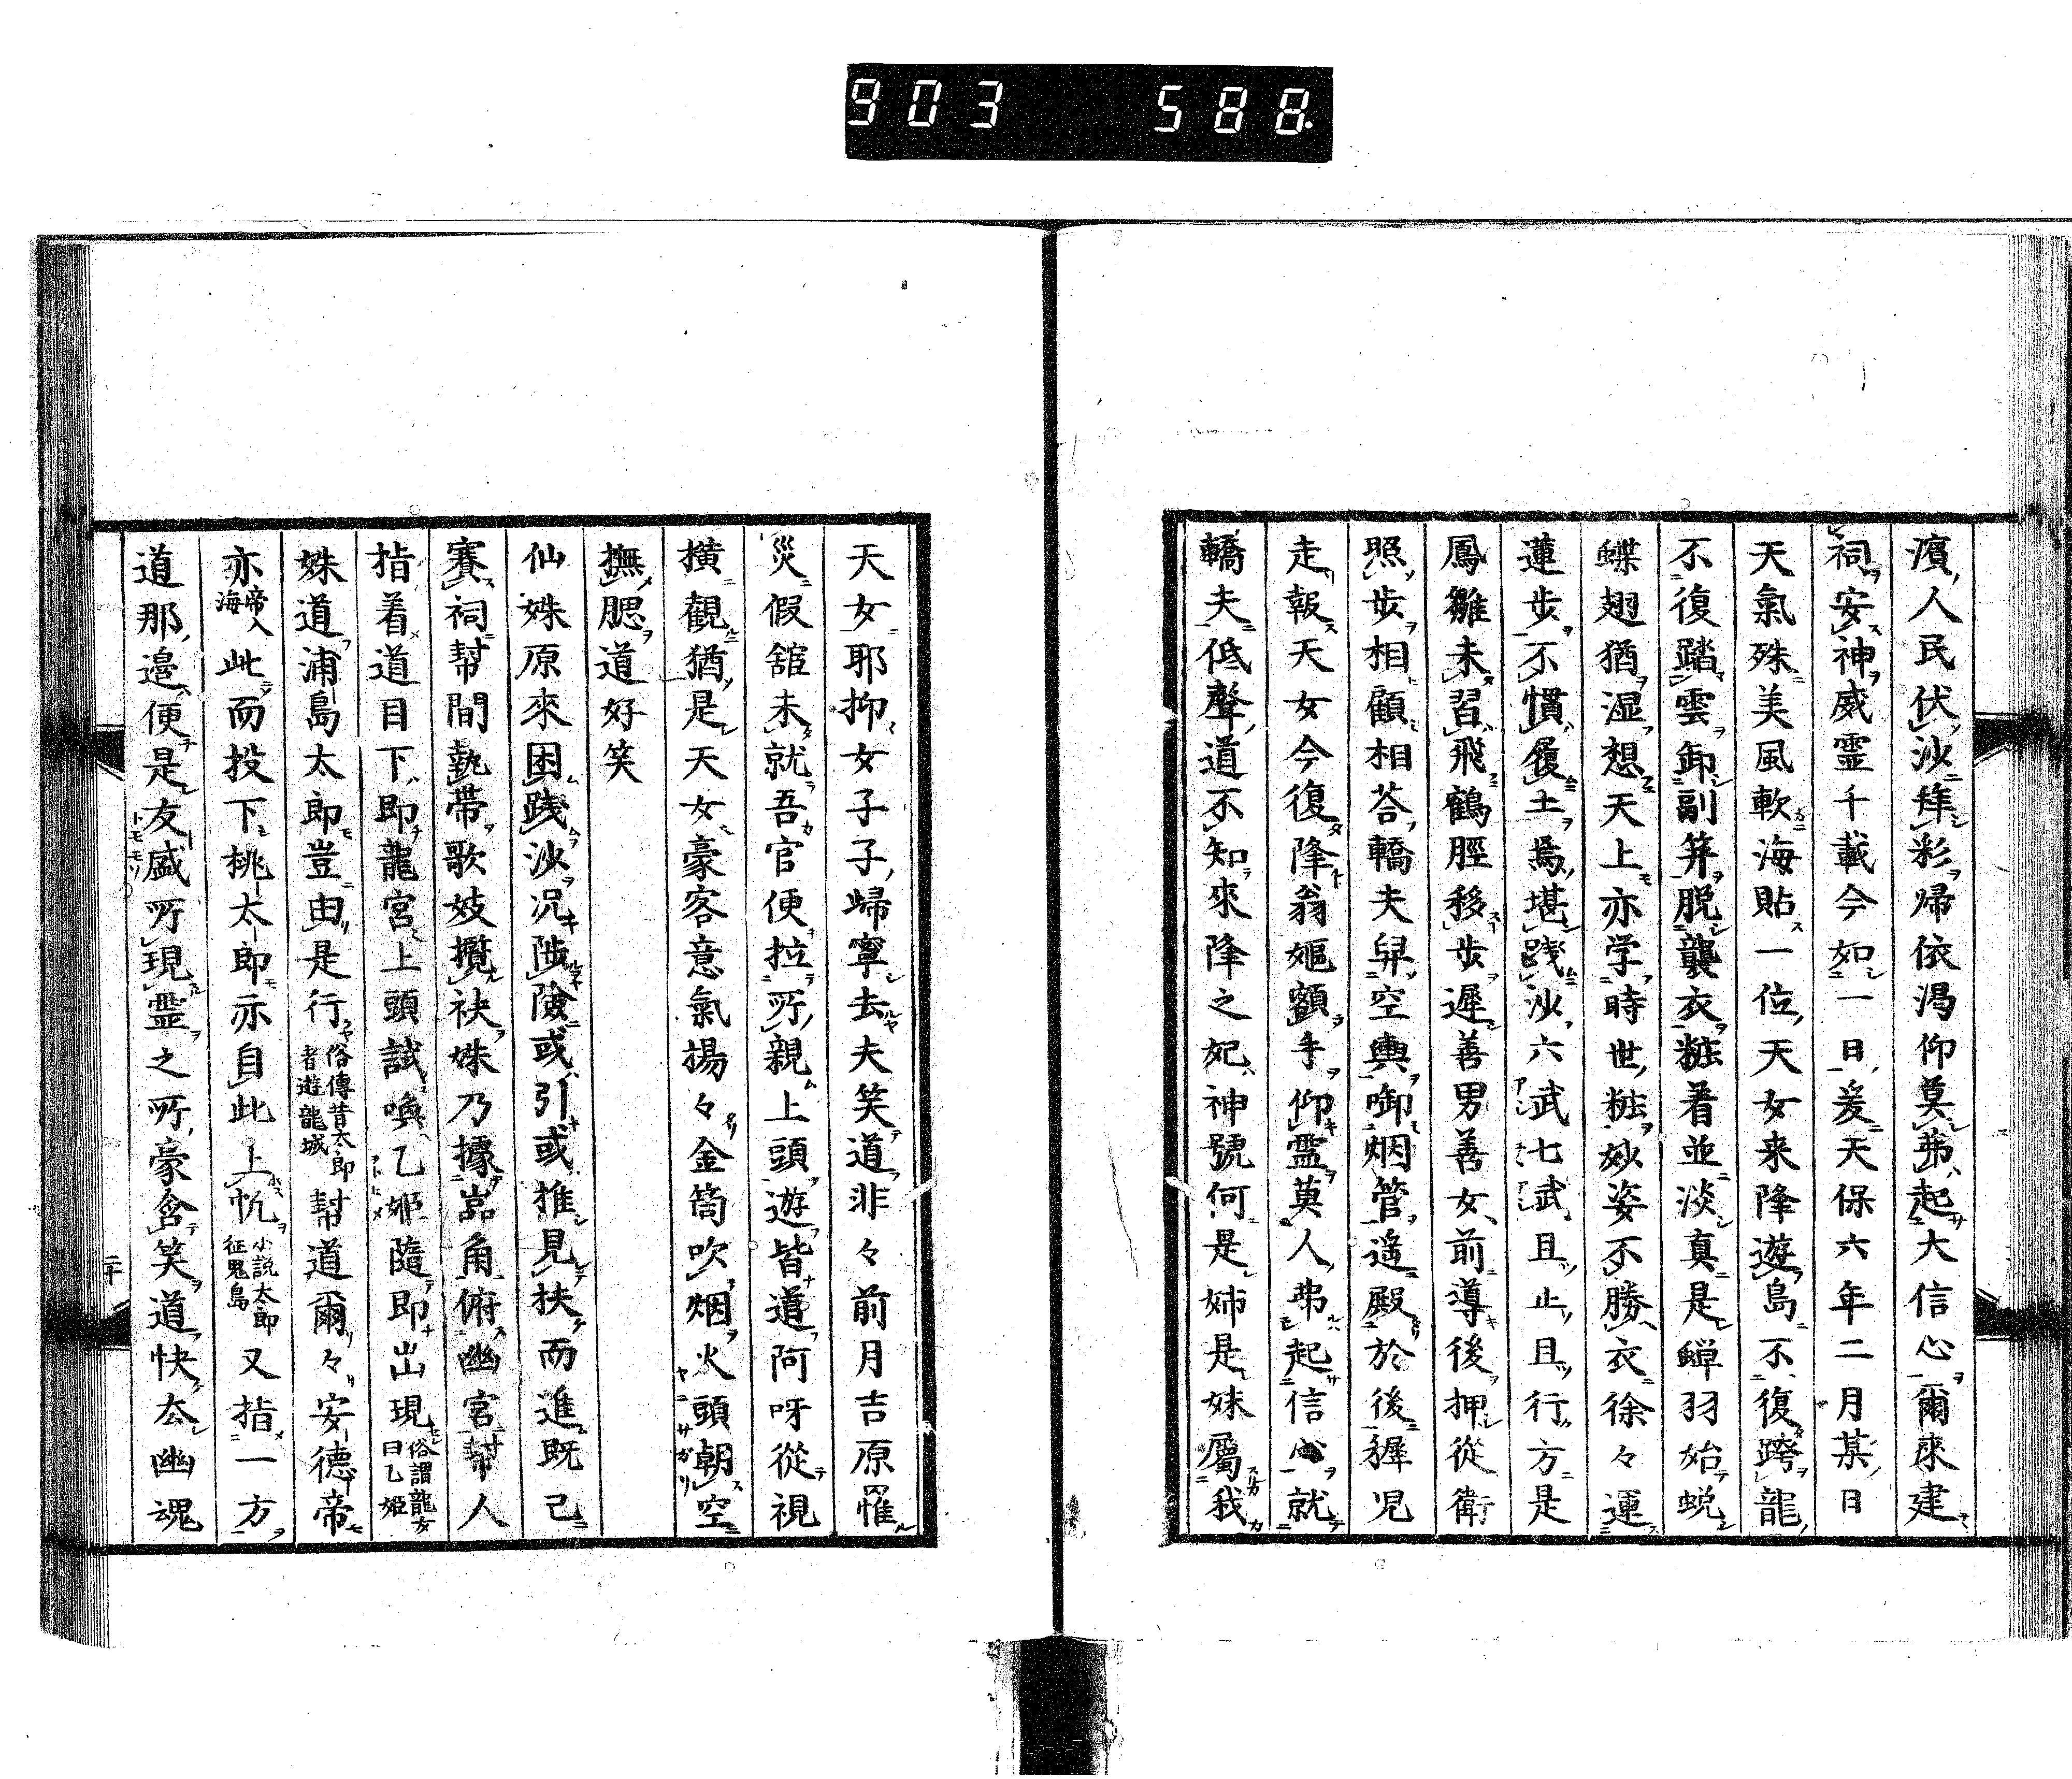 903 588
濱人民伏沙拝彩帰依渇仰莫弗起大信心爾來建
祠安神威霊千載今如一日爰天保六年二月某日
天氣殊美風軟海貼一位天女来降遊島不復跨龍
不復踏雲卸副笄脱襲衣粧着並淡真是蟬羽始蛻
蝶翅猶湿想天上亦学時世粧妙姿不勝衣徐々運
蓮歩不慣履土焉堪踐沙六武七武且止且行方是
鳳雛未習飛鶴脛移歩遲善男善女前導後押從衛
照歩相顧相荅轎夫舁空輿啣烟管遙殿於後穉児
走報天女今復降翁嫗額手仰霊莫人弗起信心就
轎夫低聲道不知來降之妃神號何是姉是妹屬我
天女耶抑女子子歸寧去夫笑道非々前月吉原罹
災假舘未就吾官便拉所親上頭遊皆道阿呀從視
横觀猶是天女豪客意氣揚々金筒吹烟火頭朝空
撫腮道好笑
仙姝原來困踐沙况陟險或引或推見扶而進既已
賽祠幇間執帶歌妓攬袂姝乃據嵓角俯幽宮幇人
指着道目下即龍宮上頭試喚乙姫隨即出現俗謂龍女曰乙姫
姝道浦島太郎豈由是行俗傳昔太郎者遊龍城幇道爾々安德帝
亦帝入海此而投下桃太郎亦自此上帆小説太郎征鬼島又指一方
道那邉便是友盛所現霊之所豪含笑道快太幽魂
二十